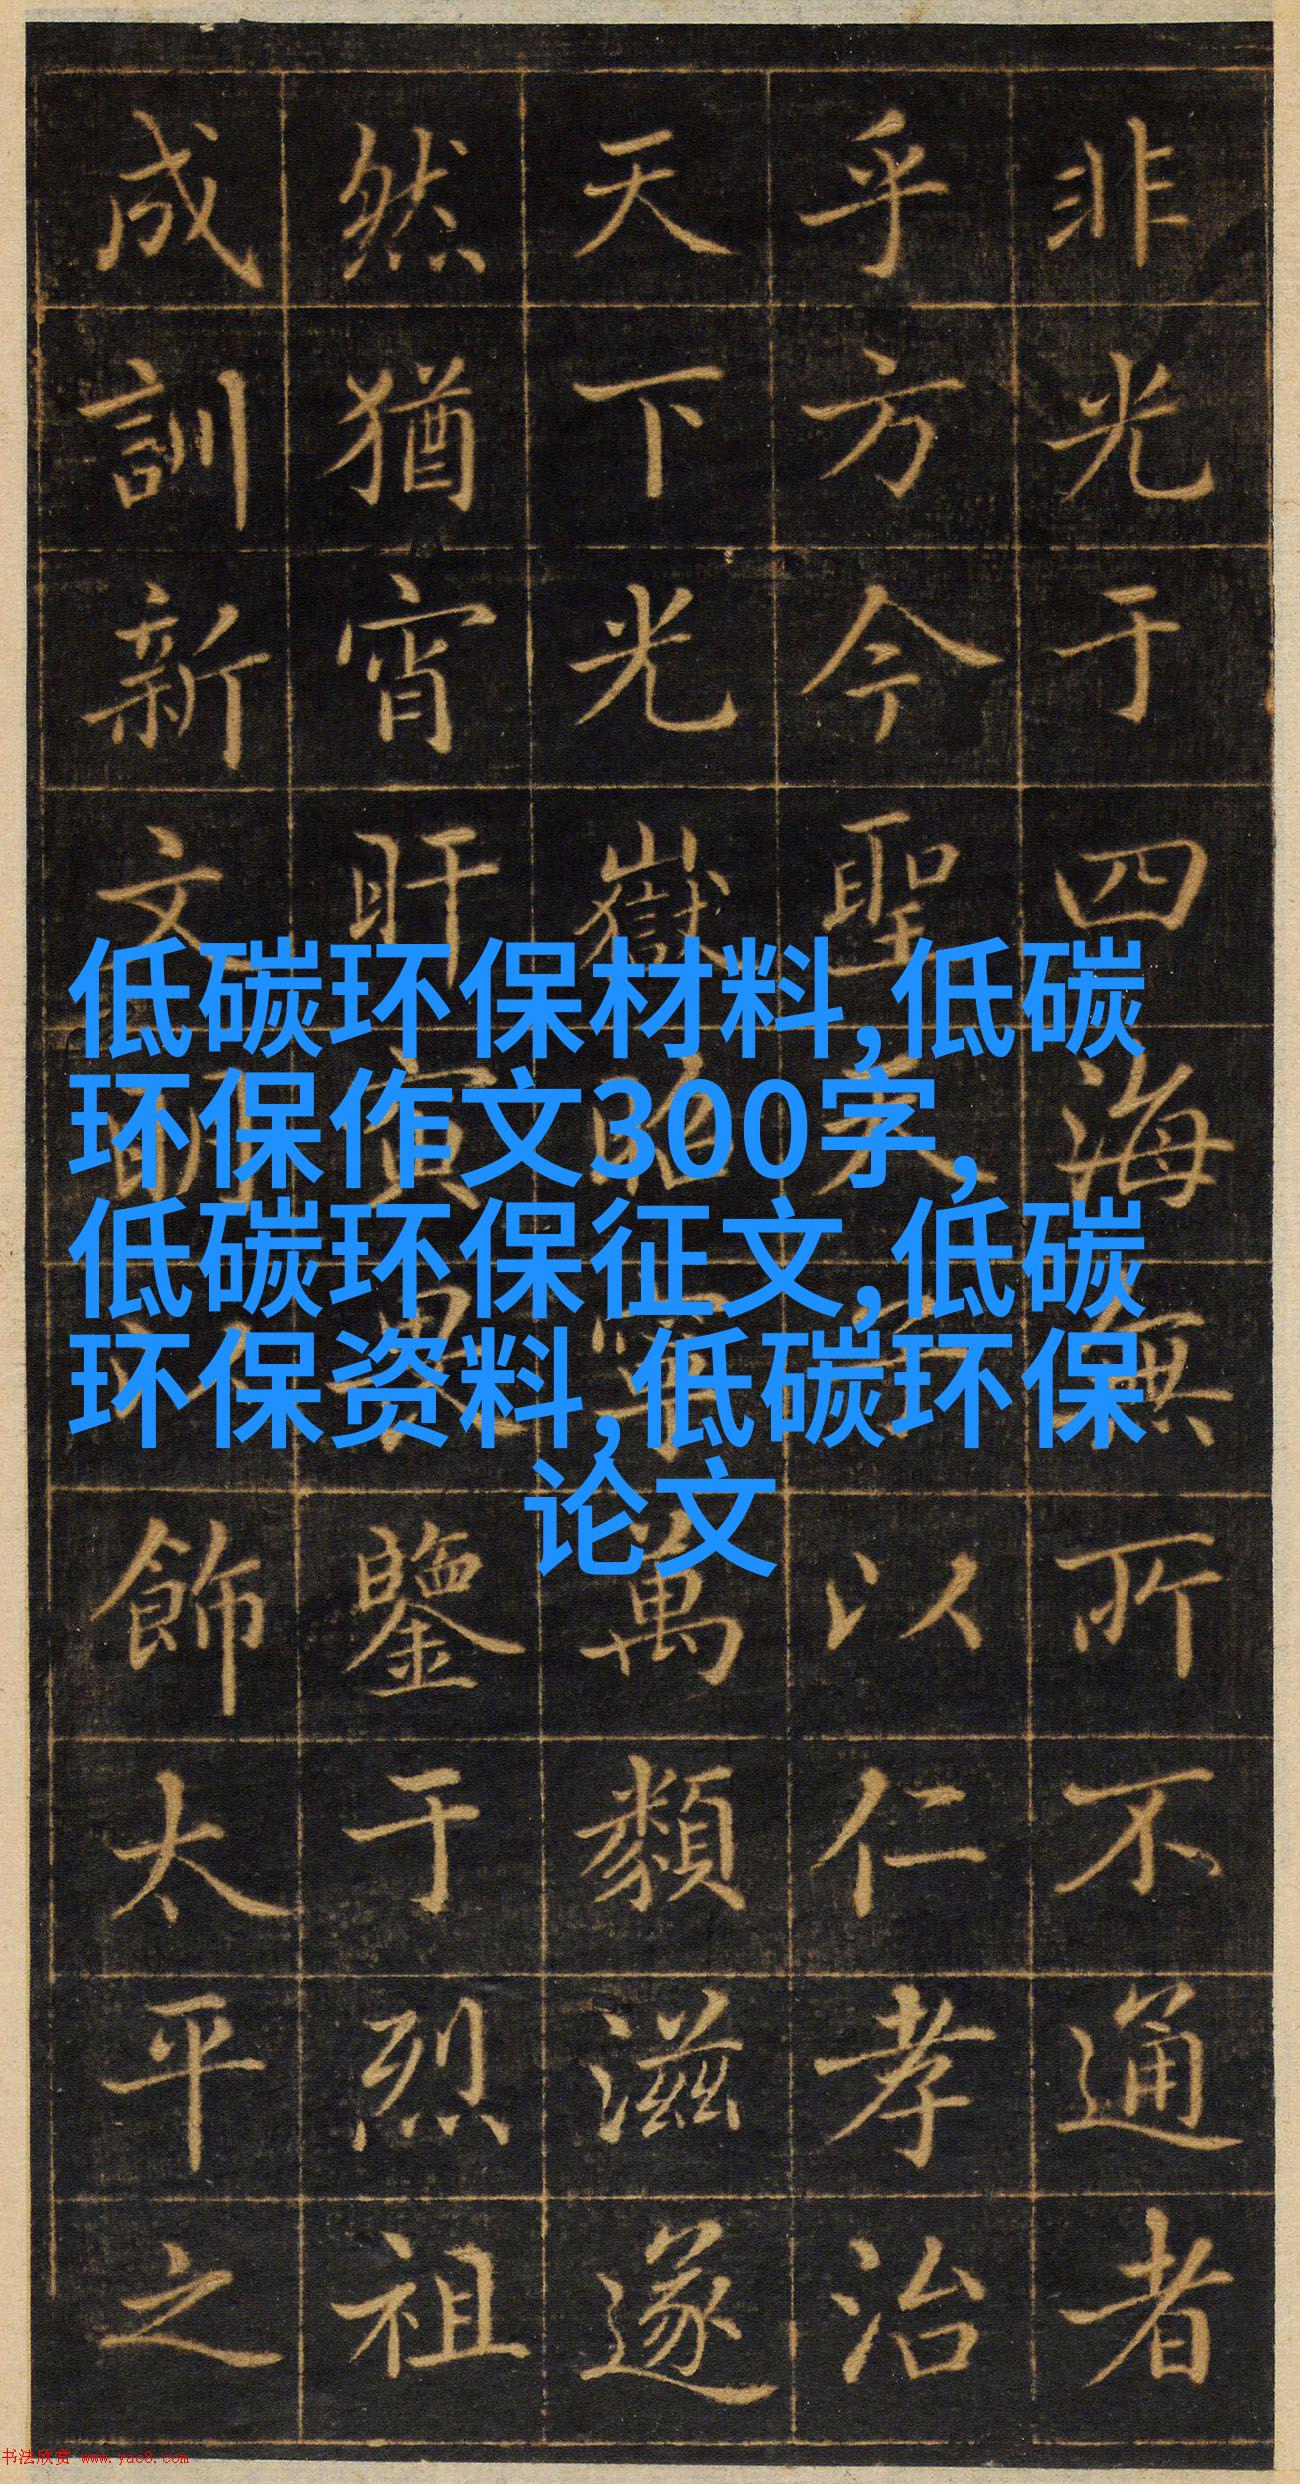 非光于四海無所不通者
乎方今聖天子以仁孝治
天下光嶽昭寧萬類滋遂
然猶宵旰寅畏鑒于烈祖
成訓新文朙飾太平之
低碳环保材料,低碳
环保作文300字,
低碳环保征文,低碳
环保资料,低碳环保
论文
书法欣赏 www.yac8.com